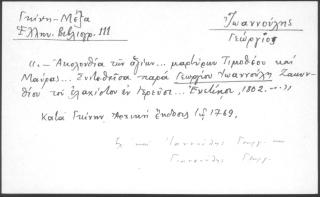 Γκίνη-Μέξα
Ἑλλην. Βιβλιογρ. III
Ἰωαννούλης
Γεώργιος
«.- Ἀκολουθία τῶν ἁγίων... μαρτύρων Τιμοθέου καὶ
Μαύρας... Συντεθεῖσα παρὰ Γεωργίου Ἰωαννούλη Ζακυν-
θίου τοῦ ἐλαχίστου ἐν ἱερεῦσι... Ἐνετίησι, 1802. --»
Κατὰ Γκίνην Ἀρχικὴ ἔκδοσις 1769.
καὶ Ἰαννούλης Γεώργ. καὶ
Γιαννούλης Γεώργ.